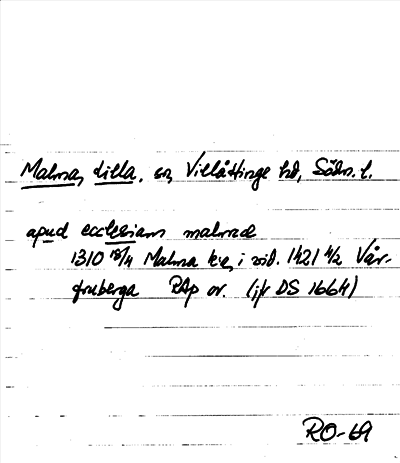 Malma, Lilla, sn, Villåttinge hd, Södm. l.
apud ecclesiam malmæ
1310 18/4 Malma k:a, i vid. 1421 4/2 Vår-
fruberga RAp or. (jfr DS 1664)
RO-69